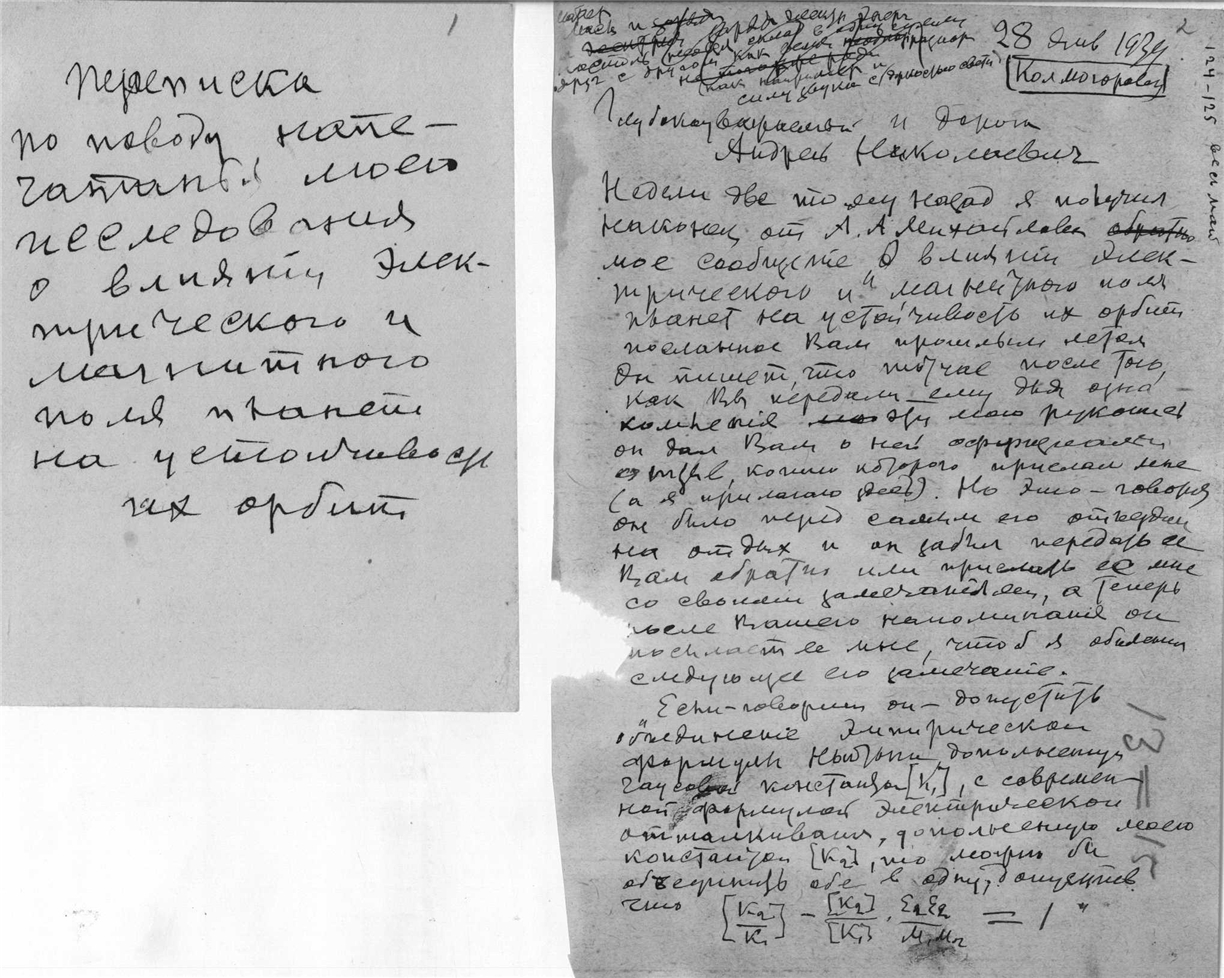 1
Переписка
по поводу напе-
чатанья моего
исследования
о влиянии Элек-
трического и
магнитного
поля планет
на устойчивость
их орбит
2
28 янв 1939
Колмогорову
124-125
друг с другом как
силу звука с яркостью света)
Глубокоуважаемый и дорогой
Андрей Николаевич
Недели две тому назад я получил
наконец от А. А. Михайлова обратно
мое сообщение О влиянии Элек-
трического и магнитного поля
планет на устойчивость их орбит
посланное Вам прошлым летом
Он пишет, что тотчас после того,
как Вы передали ему для
мою рукопись
он дал Вам о ней официальный
отзыв, копию которого прислал мне
(а я прилагаю здесь). Но это - говорит
он было перед самым его отъездом
на отдых и он забыл передать ее
Вам обратно или прислать ее мне
со своими замечаниями, а теперь
после Вашего напоминания он
посылает ее мне, чтоб я объяснил
следующее его замечание.
"Если - говорит он - допустить
объединение Эмпирической
формулы Ньютона, дополненную
Гаусовой константой [K₁], с современ-
ной формулой Электрического
отталкивания, дополненную моею
константой [K₂], то можно бы
объединить обе в одну, допустив
что [K₂/K₁] - [K₂]/[K₁] · E₁E₂/M₁M₂ = 1 "
13 = 15